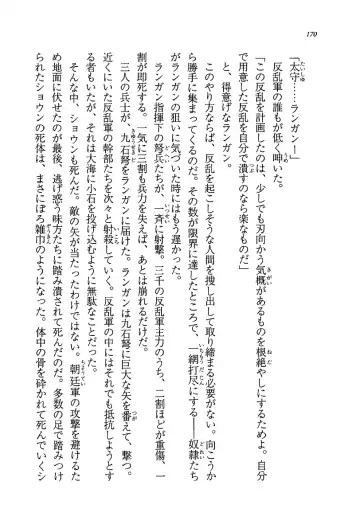 170
「太守……ランガン！」
　反乱軍の誰もが低く呻いた。
「この反乱を計画したのは、少しでも刃向かう気概があるものを根絶やしにするためよ。自分
で用意した反乱を自分で潰すのなら楽なものだ」
　と、得意げなランガン。
　このやり方ならば、反乱を起こしそうな人間を捜し出して取り締まる必要がない。向こうか
ら勝手に集まってくるのだ。その数が限界に達したところで、一網打尽にする――奴隷たち
がランガンの狙いに気づいた時にはもう遅かった。
　ランガン指揮下の弩兵たちが、一斉に射撃。三千の反乱軍主力のうち、二割ほどが重傷、一
割が即死する。一気に三割も兵力を失えば、あとは崩れるだけだ。
　三人の兵士が、九石弩をランガンに届けた。ランガンは九石弩に巨大な矢を番えて、撃つ。
近くにいた反乱軍の幹部たちを次々と射殺していく。反乱軍の中にはそれでも抵抗しようとす
る者もいたが、それは大海に小石を投げ込むように無駄なことだった。
　そんな中、ショウンも死ぬ。敵の矢が当たったわけではない。朝廷軍の攻撃を避けるた
め地面に伏せたのが最後、逃げ惑う味方たちに踏み潰されて死んだのだ。多数の足で踏みつけ
られたショウンの死体は、まさにぼろ雑巾のようになった。体中の骨を砕かれて死んでいくシ